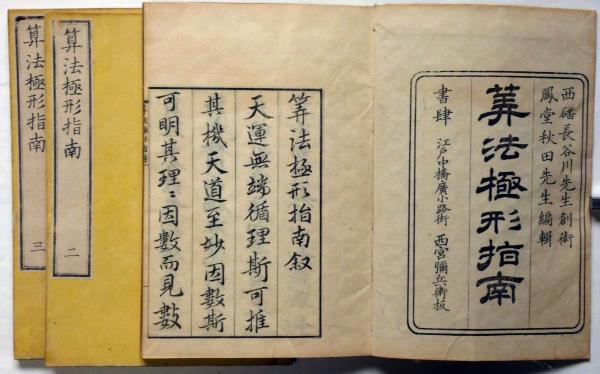 西磻長谷川先生創術
鳳堂秋田先生編輯
筭法極形指南
書肆 江戸中橋廣小路街 西宮彌兵衛板
筭法極形指南叙
天運無端循理斯可推
其機天道至妙因數斯
可明其理〻因數而見數
算法極形指南 二
算法極形指南 三